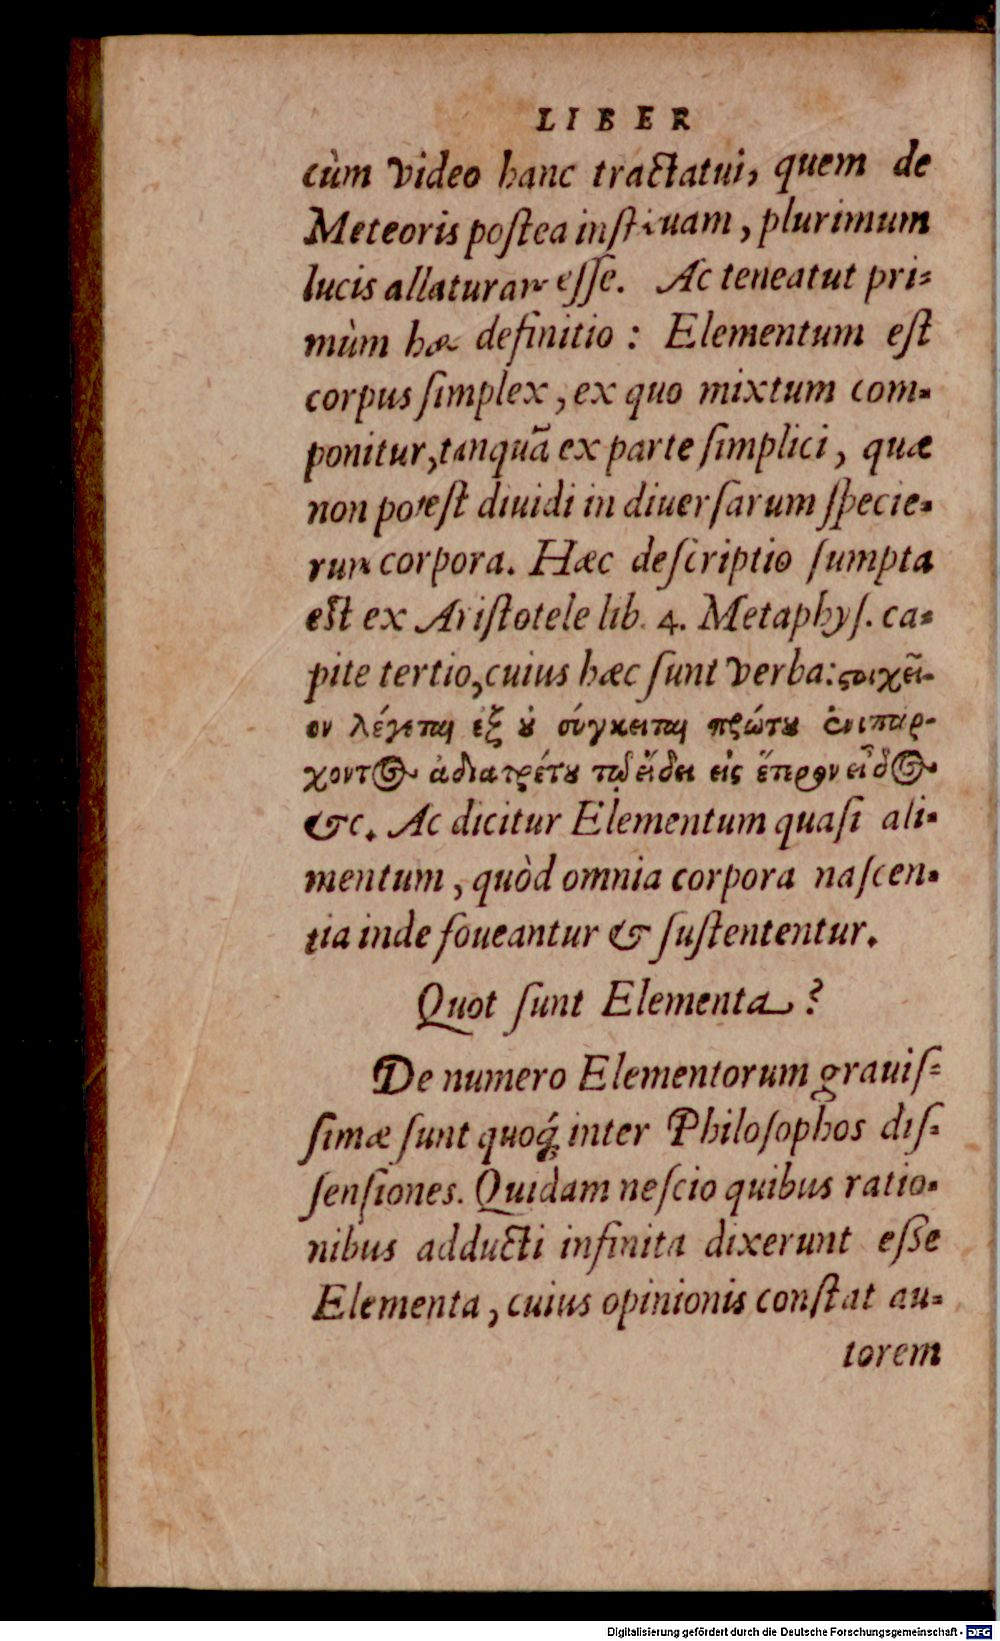 LIBER
cùm video hanc tractatui, quem de
Meteoris postea instituam, plurimum
lucis allaturam esse. Ac teneatut pri-
mùm hæc definitio: Elementum est
corpus simplex, ex quo mixtum com-
ponitur, tanquã ex parte simplici, quæ
non potest diuidi in diuersarum specie-
rum corpora. Hæc descriptio sumpta
est ex Aristotele lib. 4. Metaphys. ca-
pite tertio, cuius hæc sunt verba: ϛοιχεῖ-
ον λέγεται ἐξ ȣ σύγκειται πρώτȣ ἐνυπάρ-
χοντος ἀδιαιρέτȣ τῷ εἴδει εἰς ἕτερον εἶδος
&c. Ac dicitur Elementum quasi ali-
mentum, quòd omnia corpora nascen-
tia inde foueantur & sustententur.
Quot sunt Elementa?
De numero Elementorum grauis-
simæ sunt quoq́; inter Philosophos dis-
sensiones. Quidam nescio quibus ratio-
nibus adducti infinita dixerunt esse
Elementa, cuius opinionis constat au-
torem
Digitalisierung gefördert durch die Deutsche Forschungsgemeinschaft - DFG